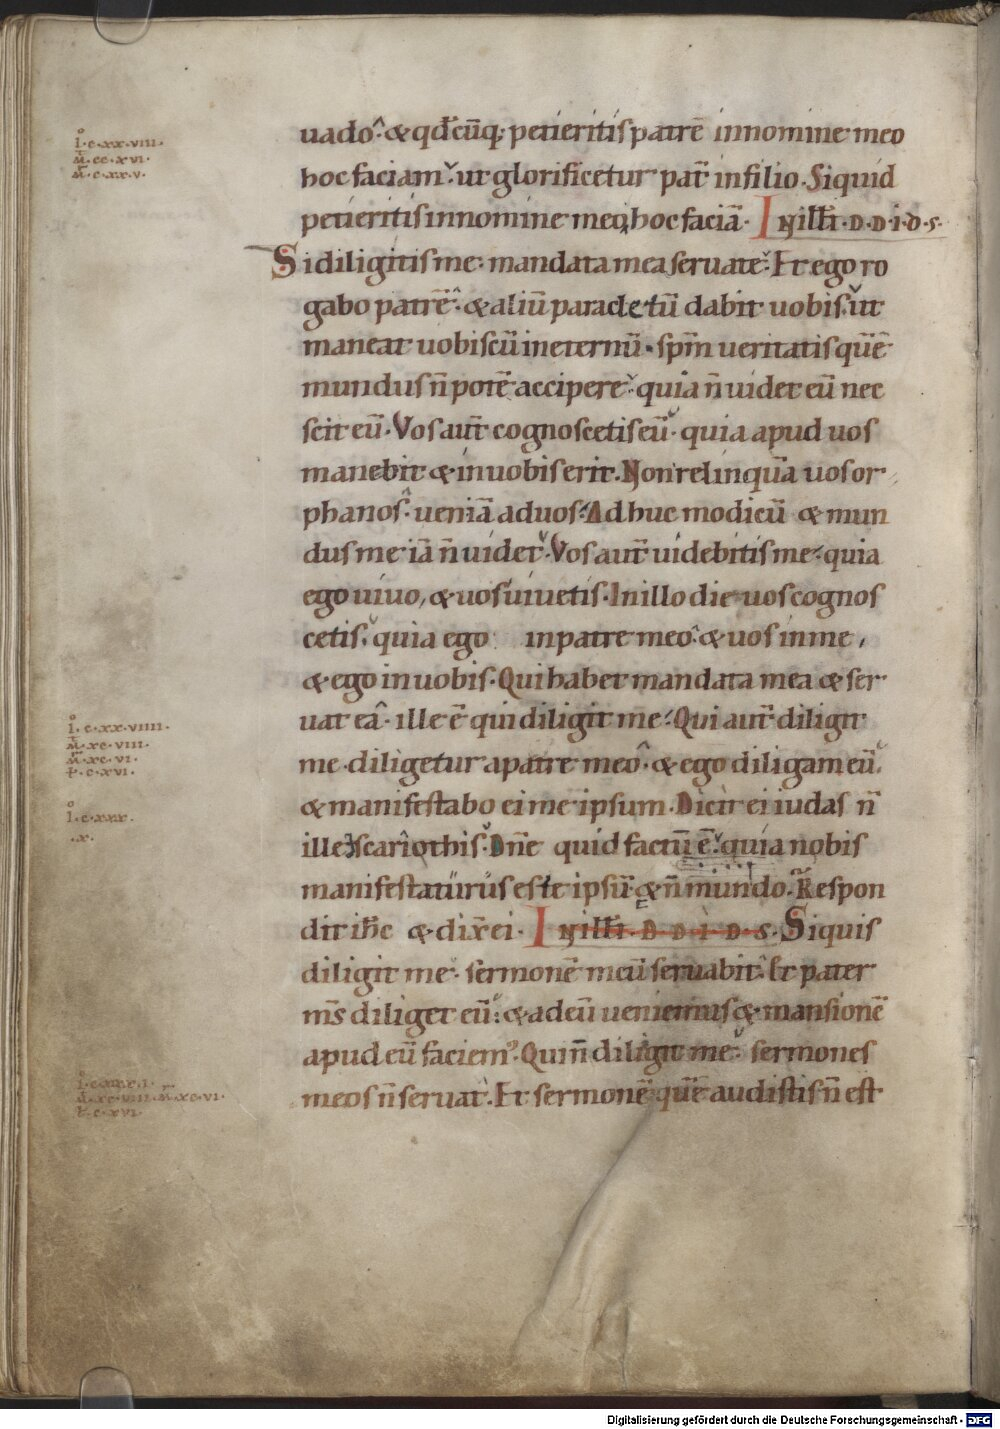 uado. & qđcūq; petieritis patrē innomine meo
hoc faciam. ut glorificetur pat̄ infilio. Siquid
petieritis innomine meo, hoc faciā. Inillī·D·D·I·D·S·
Si diligitis me. mandata mea seruate. Et ego ro
gabo patrē. & aliū paracletū dabit uobis. ut
maneat uobiscū ineternū. spm̄ ueritatis quē
mundus n̄ potē accipere. quia n̄ uidet eū nec
scit eū. Vos aut̄ cognoscetis eū. quia apud uos
manebit & inuobis erit. Non relinquā uos or
phanos. ueniā aduos. Adhuc modicū & mun
dus me iā n̄ uidet. Vos aut̄ uidebitis me. quia
ego uiuo, & uos uiuetis. Inillo die uos cognos
cetis. quia ego inpatre meo. & uos inme,
& ego inuobis. Qui habet mandata mea & ser
uat eā. ille ē qui diligit me. Qui aut̄ diligit
me. diligetur apatre meo. & ego diligam eū.
& manifestabo ei me ipsum. Dicit ei iudas n̄
ille scariothis. Dn̄e quid factū ē. quia nobis
manifestaturus es te ipsū. & n̄ mundo. Respon
dit ih̄c & dix̄ ei. Inillī·D·D·I·D·S. Siquis
diligit me. sermonē meū seruabit. Et pater
m̄s diliget eū. & adeū ueniemus & mansionē
apud eū faciem᾿. Qui n̄ diligit me. sermones
meos n̄ seruat. Et sermonē quē audistis n̄ est
I·c·xx·viii·
M̄·cc·xvi·
M̄·c·xx·v·
I·c·xx·viiii·
M̄·xc·viii·
M̄·xc·vi·
L·c·xvi·
I·c·xxx·
·x·
L·c·xvi·
Digitalisierung gefördert durch die Deutsche Forschungsgemeinschaft - DFG